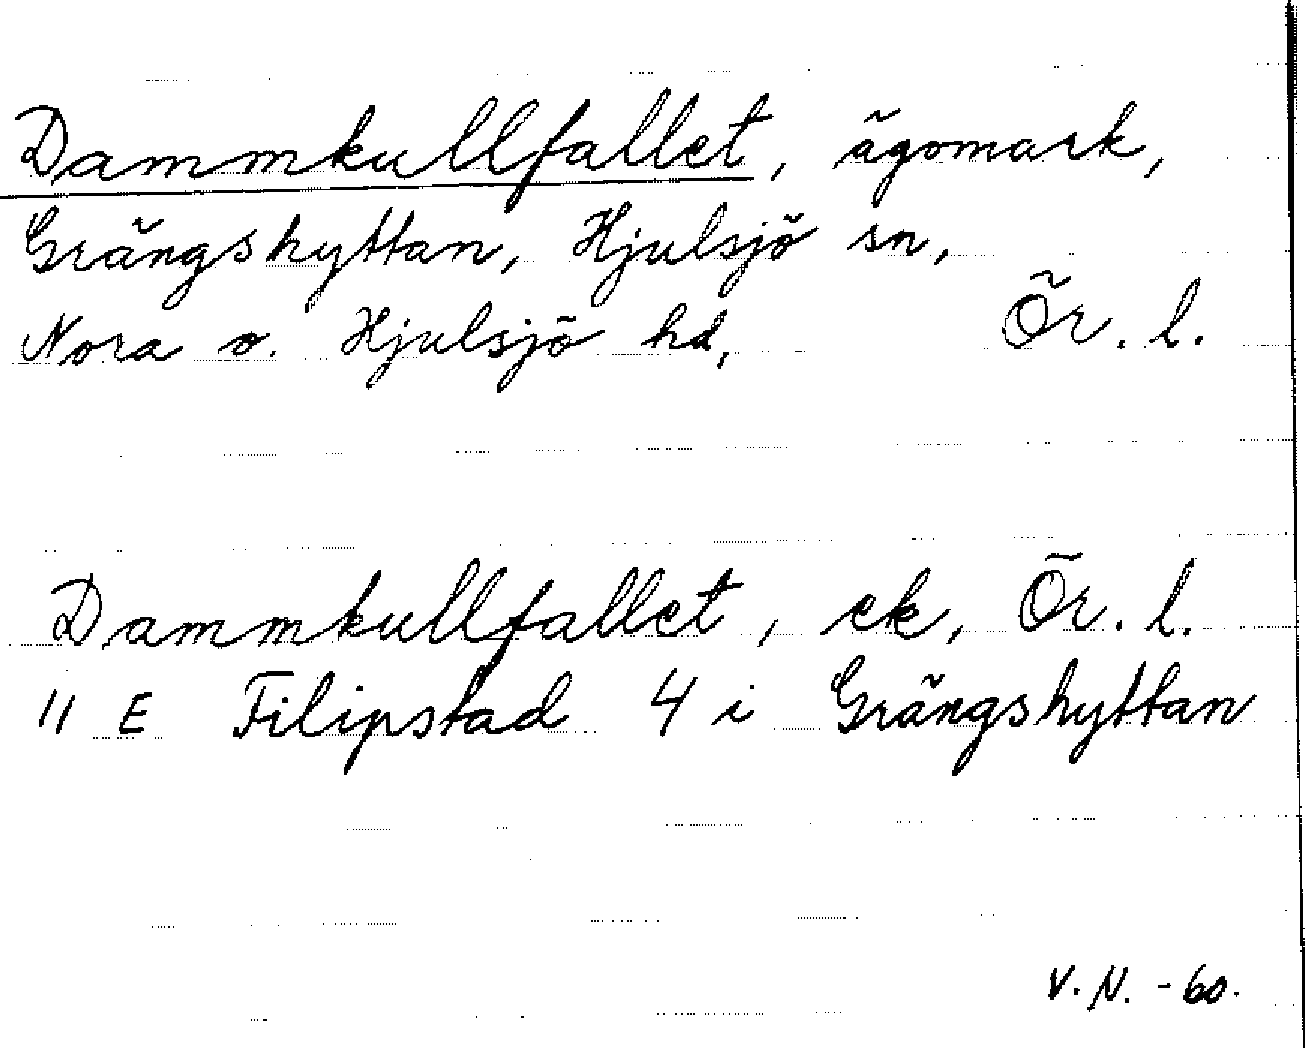 Dammkullfallet, ägomark,
Grängshyttan, Hjulsjö sn,
Nora o. Hjulsjö hd, Ör. l.
Dammkullfallet, ek, Ör. l.
11 E Filipstad 4 i Grängshyttan
V. N. - 60.